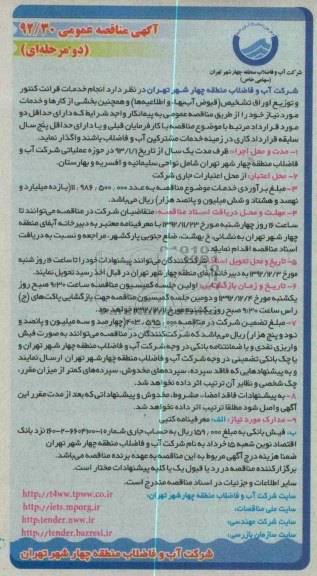 آگهی مناقصه عمومی ۹۲/۳۰
(دو مرحله‌ای)
شرکت آب و فاضلاب منطقه چهار شهر تهران
(سهامی خاص)
شرکت آب و فاضلاب منطقه چهار شهر تهران در نظر دارد انجام خدمات قرائت کنتور
و توزیع اوراق تشخیص (قبوض آب‌بهاء و اطلاعیه‌ها) و همچنین بخشی از کارها و خدمات
مورد نیاز خود را از طریق مناقصه عمومی به پیمانکار واجد شرایط که دارای حداقل دو
مورد قرارداد مرتبط با موضوع مناقصه با کارفرمایان قبلی و یا دارای حداقل پنج سال
سابقه قرارداد کاری در زمینه خدمات مشترکین آب و فاضلاب باشند واگذار نماید.
۱- مدت و محل اجرا: ظرف مدت یک سال از تاریخ ۹۳/۱/۱ در حوزه عملیاتی شرکت آب و
فاضلاب منطقه چهار شهر تهران شامل نواحی سلیمانیه و افسریه و بهارستان.
۲- محل اعتبار: از محل اعتبارات جاری شرکت
۳- مبلغ برآوردی خدمات موضوع مناقصه به عدد ۱۱/۹۸۶/۵۰۰/۰۰۰ (یازده میلیارد و
نهصد و هشتاد و شش میلیون و پانصد هزار) ریال می‌باشد.
۴- مهلت و محل دریافت اسناد مناقصه: متقاضیان شرکت در مناقصه می‌توانند تا
ساعت ۱۶ روز چهارشنبه مورخ ۱۳۹۲/۱۱/۲۳ با معرفینامه معتبر به دبیرخانه آبفای منطقه
چهار شهر تهران به نشانی: خ بهشت، ضلع جنوبی پارکشهر، مراجعه و نسبت به دریافت
اسناد مناقصه اقدام نمایند.
۵- تاریخ و محل تحویل اسناد: شرکت‌کنندگان می‌توانند پیشنهادات خود را تا ساعت ۱۶ روز شنبه
مورخ ۱۳۹۲/۱۲/۳ به دبیرخانه آبفای منطقه چهار شهر تهران در قبال اخذ رسید تحویل نمایند.
۶- تاریخ و زمان بازگشایی: اولین جلسه کمیسیون مناقصه ساعت ۹:۳۰ صبح روز
یکشنبه مورخ ۱۳۹۲/۱۲/۴ و دومین جلسه کمیسیون مناقصه جهت بازگشایی پاکت‌های (ج)
راس ساعت ۹:۳۰ صبح روز یکشنبه مورخ خواهد بود.
۷- مبلغ تضمین شرکت در مناقصه ۴۰۳/۵۹۵/۰۰۰ (چهارصد و سه میلیون و پانصد و
نود و پنج هزار) ریال می‌باشد که شرکت‌کنندگان در مناقصه می‌توانند به صورت فیش
واریزی نقدی و یا ضمانتنامه بانکی در وجه شرکت آب و فاضلاب منطقه چهار شهر تهران و
یا چک بانکی تضمینی در وجه شرکت آب و فاضلاب منطقه چهار شهر تهران ارسال نمایند
و به پیشنهادهایی که فاقد سپرده، سپرده‌های مخدوش، سپرده‌های کمتر از میزان مقرر،
چک شخصی و نظایر آن ترتیب اثر داده نخواهد شد.
۸- به پیشنهادات فاقد امضاء، مشروط، مخدوش و پیشنهاداتی که بعد از مدت مقرر این
آگهی واصل شود مطلقا ترتیب اثر داده نخواهد شد.
۹- مدارک مورد نیاز: الف: معرفینامه کتبی
ب: فیش بانکی به مبلغ ۱۵۹/۰۰۰ ریال به حساب جاری شماره نزد بانک
اقتصاد نوین شعبه ۱۵ خرداد به نام شرکت آب و فاضلاب منطقه چهار شهر تهران
ضمنا هزینه درج آگهی مربوط به این مناقصه به عهده برنده مناقصه می‌باشد.
برگزارکننده مناقصه در رد یا قبول یک یا کلیه پیشنهادات مختار است.
سایر اطلاعات و جزئیات در اسناد مناقصه مندرج است.
سایت شرکت آب و فاضلاب منطقه چهار شهر تهران: http://t4ww.tpww.co.ir
سایت ملی مناقصات: http://iets.mporg.ir
سایت شرکت مهندسی: http:tender.nww.ir
سایت سازمان بازرسی: http://tender.bazresi.ir
شرکت آب و فاضلاب منطقه چهار شهر تهران